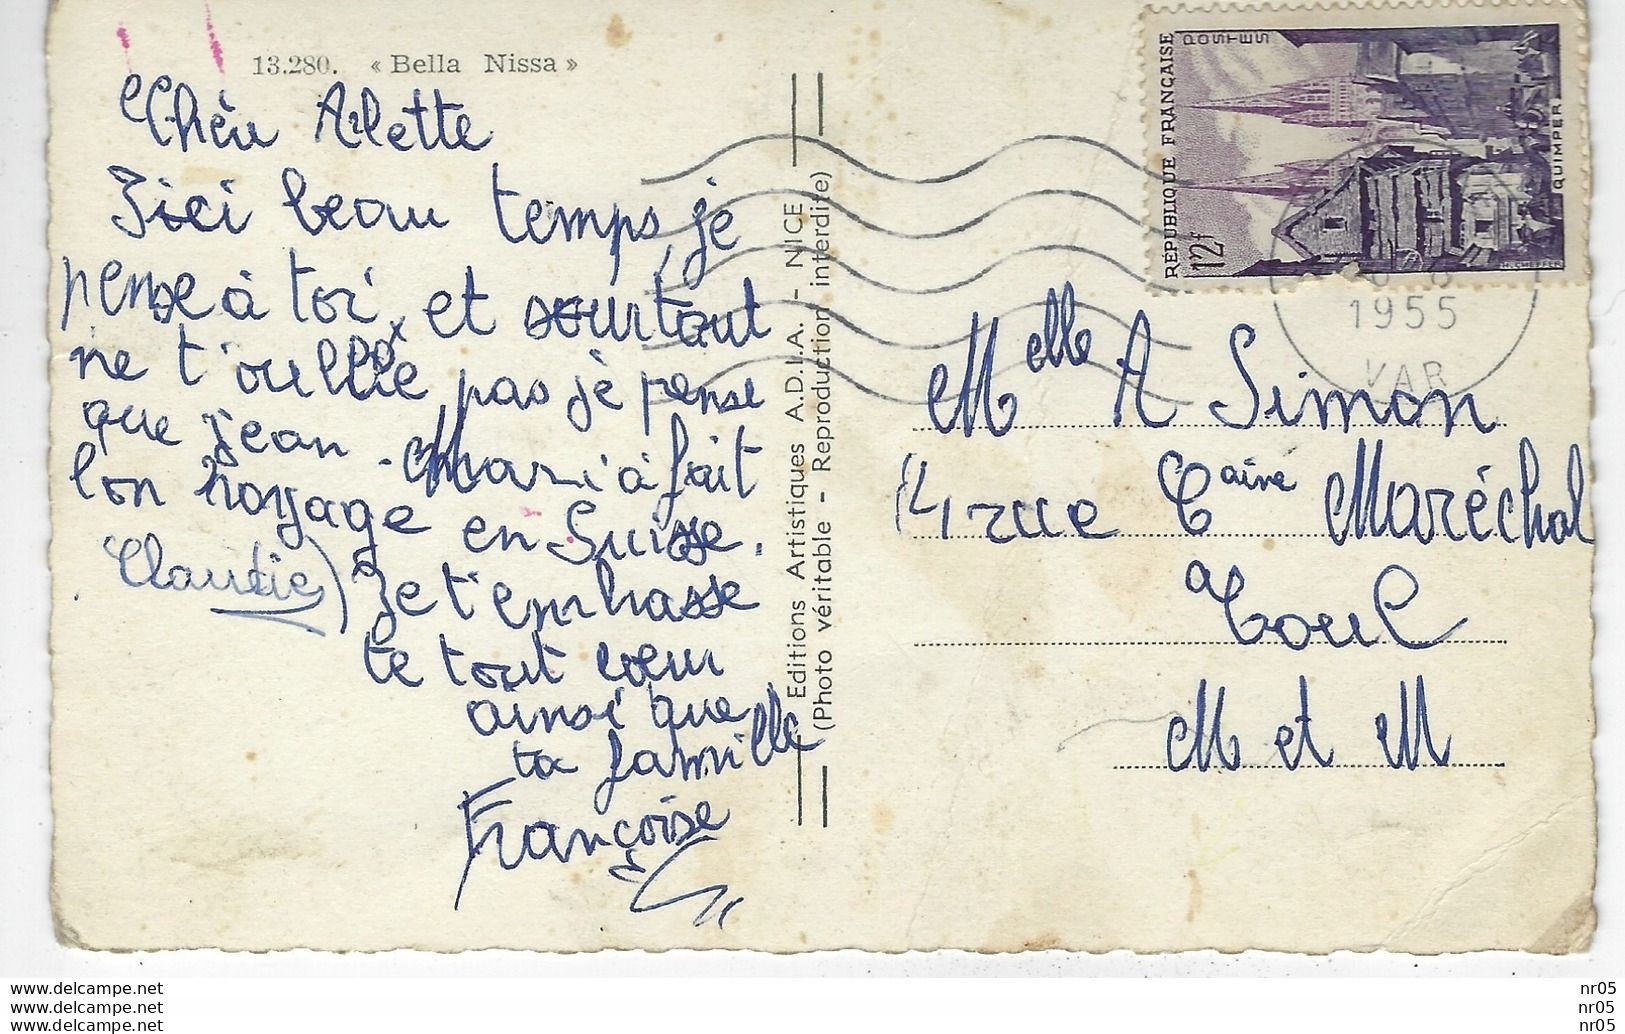 13.280. « Bella Nissa »
Chère Arlette
Ici beau temps, je
pense à toi et sourtout
ne t'oullie pas je pense
que jean-Mari à fait
bon voyage en Suisse.
Claudie) Je t'embrasse
te tout cœur
ainsi que
ta famille
Françoise
Editions Artistiques A.D.I.A. - NICE
(Photo véritable - Reproduction interdite)
RÉPUBLIQUE FRANÇAISE
POSTES
12f
QUIMPER
H. CHEFFER
1955
VAR
Melle A Simon
14 rue Caine Maréchal
a Toul
M et M
www.delcampe.net
www.delcampe.net
www.delcampe.net
nr05
nr05
nr05